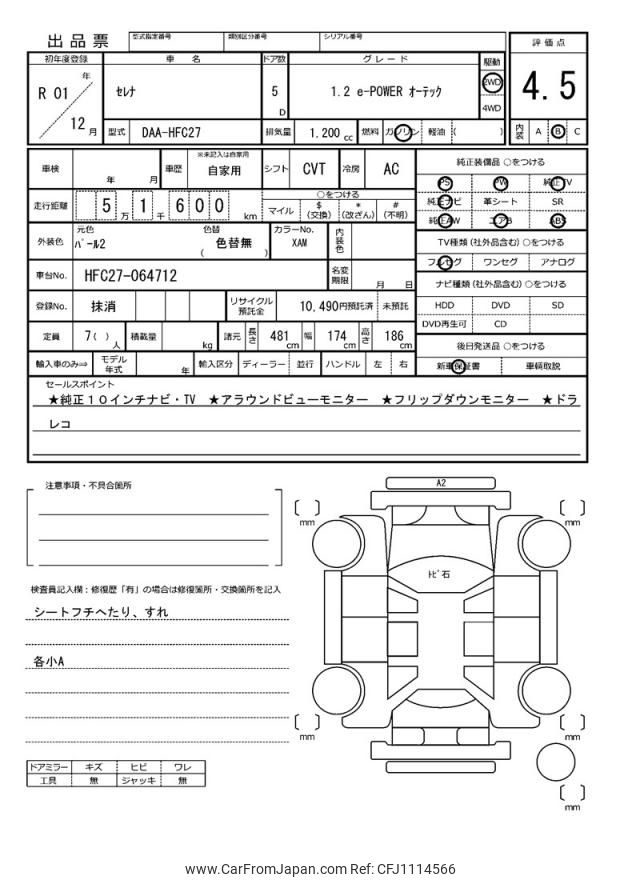 出品票 型式指定番号 類別区分番号 シリアル番号 評価点
初年度登録 車名 ドア数 グレード 駆動
R 01 年 セレナ 5 D 1.2 e-POWER オーテック 2WD 4WD 4.5
12 月 型式 DAA-HFC27 排気量 1,200 cc 燃料 ガソリン 軽油 ( ) 内装 A B C
車検 年 月 車歴 ※未記入は自家用 自家用 シフト CVT 冷房 AC 純正装備品 ○をつける
PS PW 純正TV
走行距離 5 万 1 千 6 0 0 km ○をつける
マイル $(交換) *(改ざん) #(不明) 純正ナビ 革シート SR
純正AW エアB ABS
外装色 元色 パール2 色替 色替無 ( ) カラーNo. XAM 内装色 TV種類(社外品含む)○をつける
フルセグ ワンセグ アナログ
車台No. HFC27-064712 名変期限 月 日 ナビ種類(社外品含む)○をつける
登録No. 抹消 リサイクル預託金 10,490円預託済 未預託 HDD DVD SD
DVD再生可 CD
定員 7( ) 人 積載量 kg 諸元 長さ 481 cm 幅 174 cm 高さ 186 cm 後日発送品 ○をつける
輸入車のみ⇒ モデル年式 年 輸入区分 ディーラー 並行 ハンドル 左 右 新車保証書 車輌取説
セールスポイント
★純正10インチナビ・TV ★アラウンドビューモニター ★フリップダウンモニター ★ドラ
レコ
注意事項・不具合箇所
A2
[ ] mm [ ] mm
トビ石
検査員記入欄：修復歴「有」の場合は修復箇所・交換箇所を記入
シートフチへたり、すれ
各小A
[ ] mm [ ] mm
ドアミラー キズ ヒビ ワレ
工具 無 ジャッキ 無
[ ] mm
www.CarFromJapan.com Ref: CFJ1114566